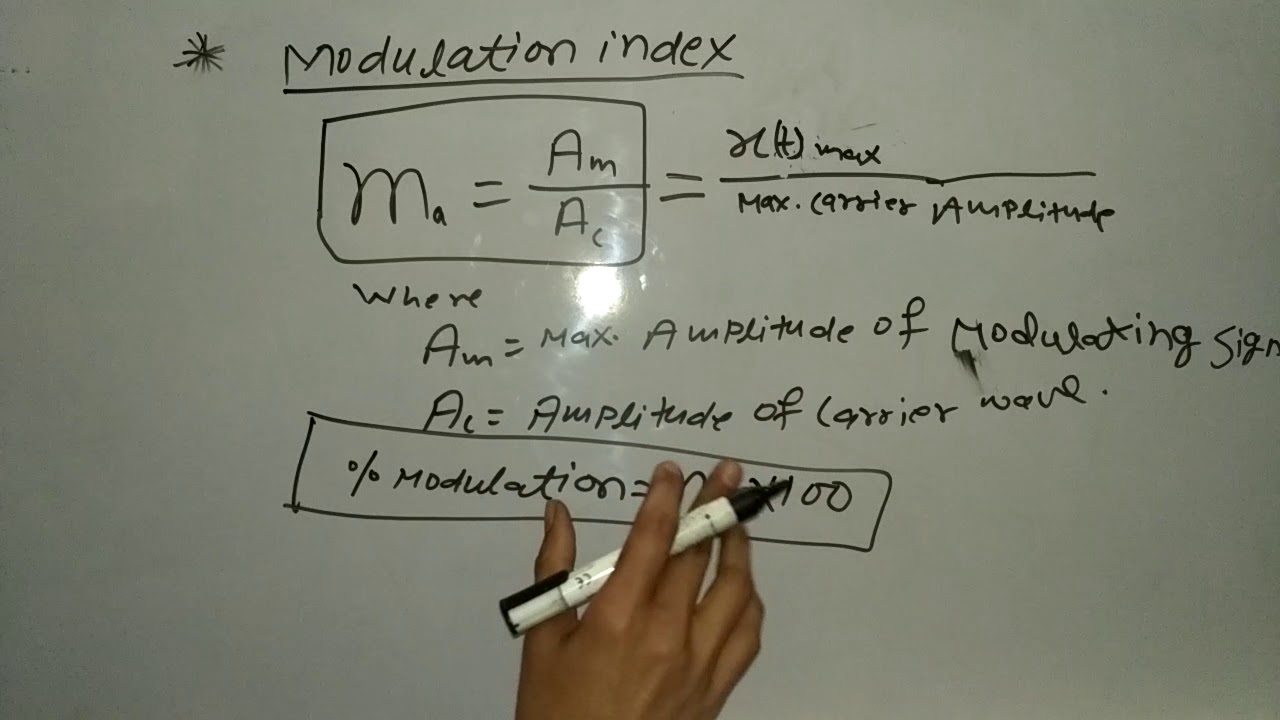 * Modulation index
ma = Am/Ac = x(t) max / Max. Carrier Amplitude
Where
Am = Max. Amplitude of Modulating Sign
Ac = Amplitude of Carrier wave.
% Modulation = m ×100